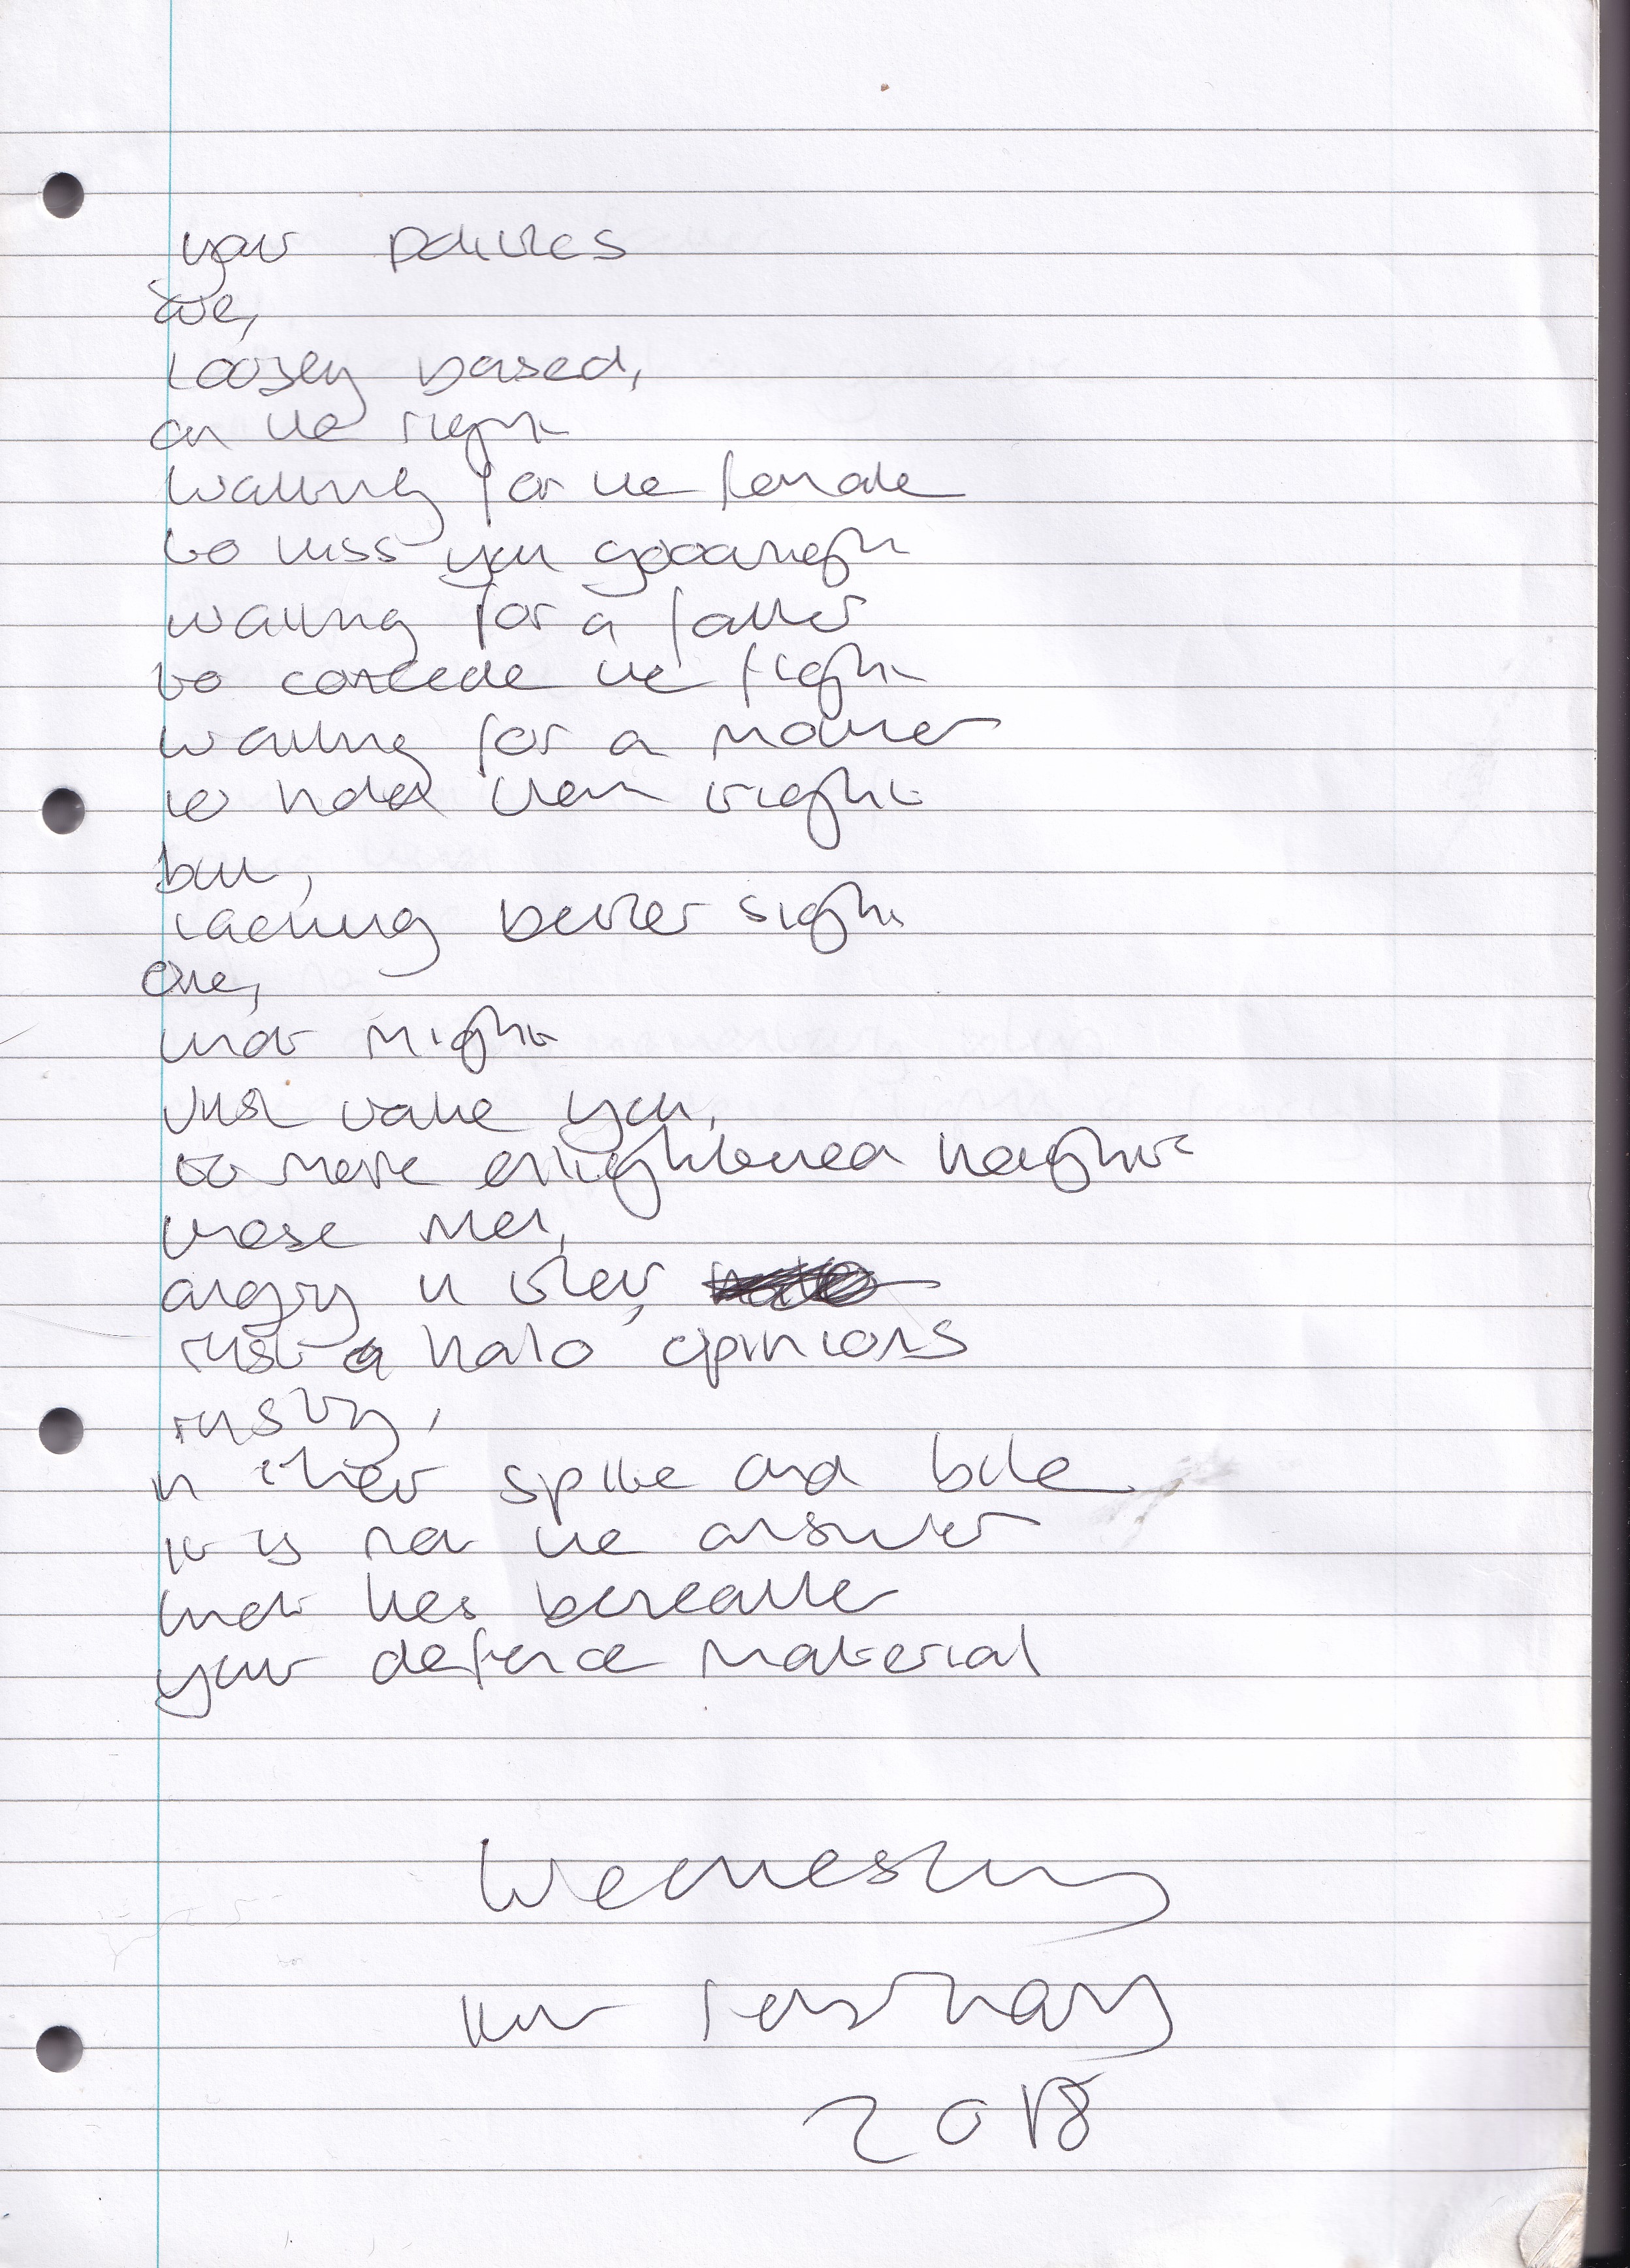 your politics
are,
loosley based,
on the right
waiting for the female
to kiss you goodnight
waiting for a father
to concede the fight
waiting for a mother
to hold them tight
but,
lacking better sight
one,
that might
just take you,
to more enlightened heights
these men,
angry in their,
rust a halo opinions
rusty,
in their spike and bite
it is not the answer
that lies beneath
your defence material
Wednesday
February
2018